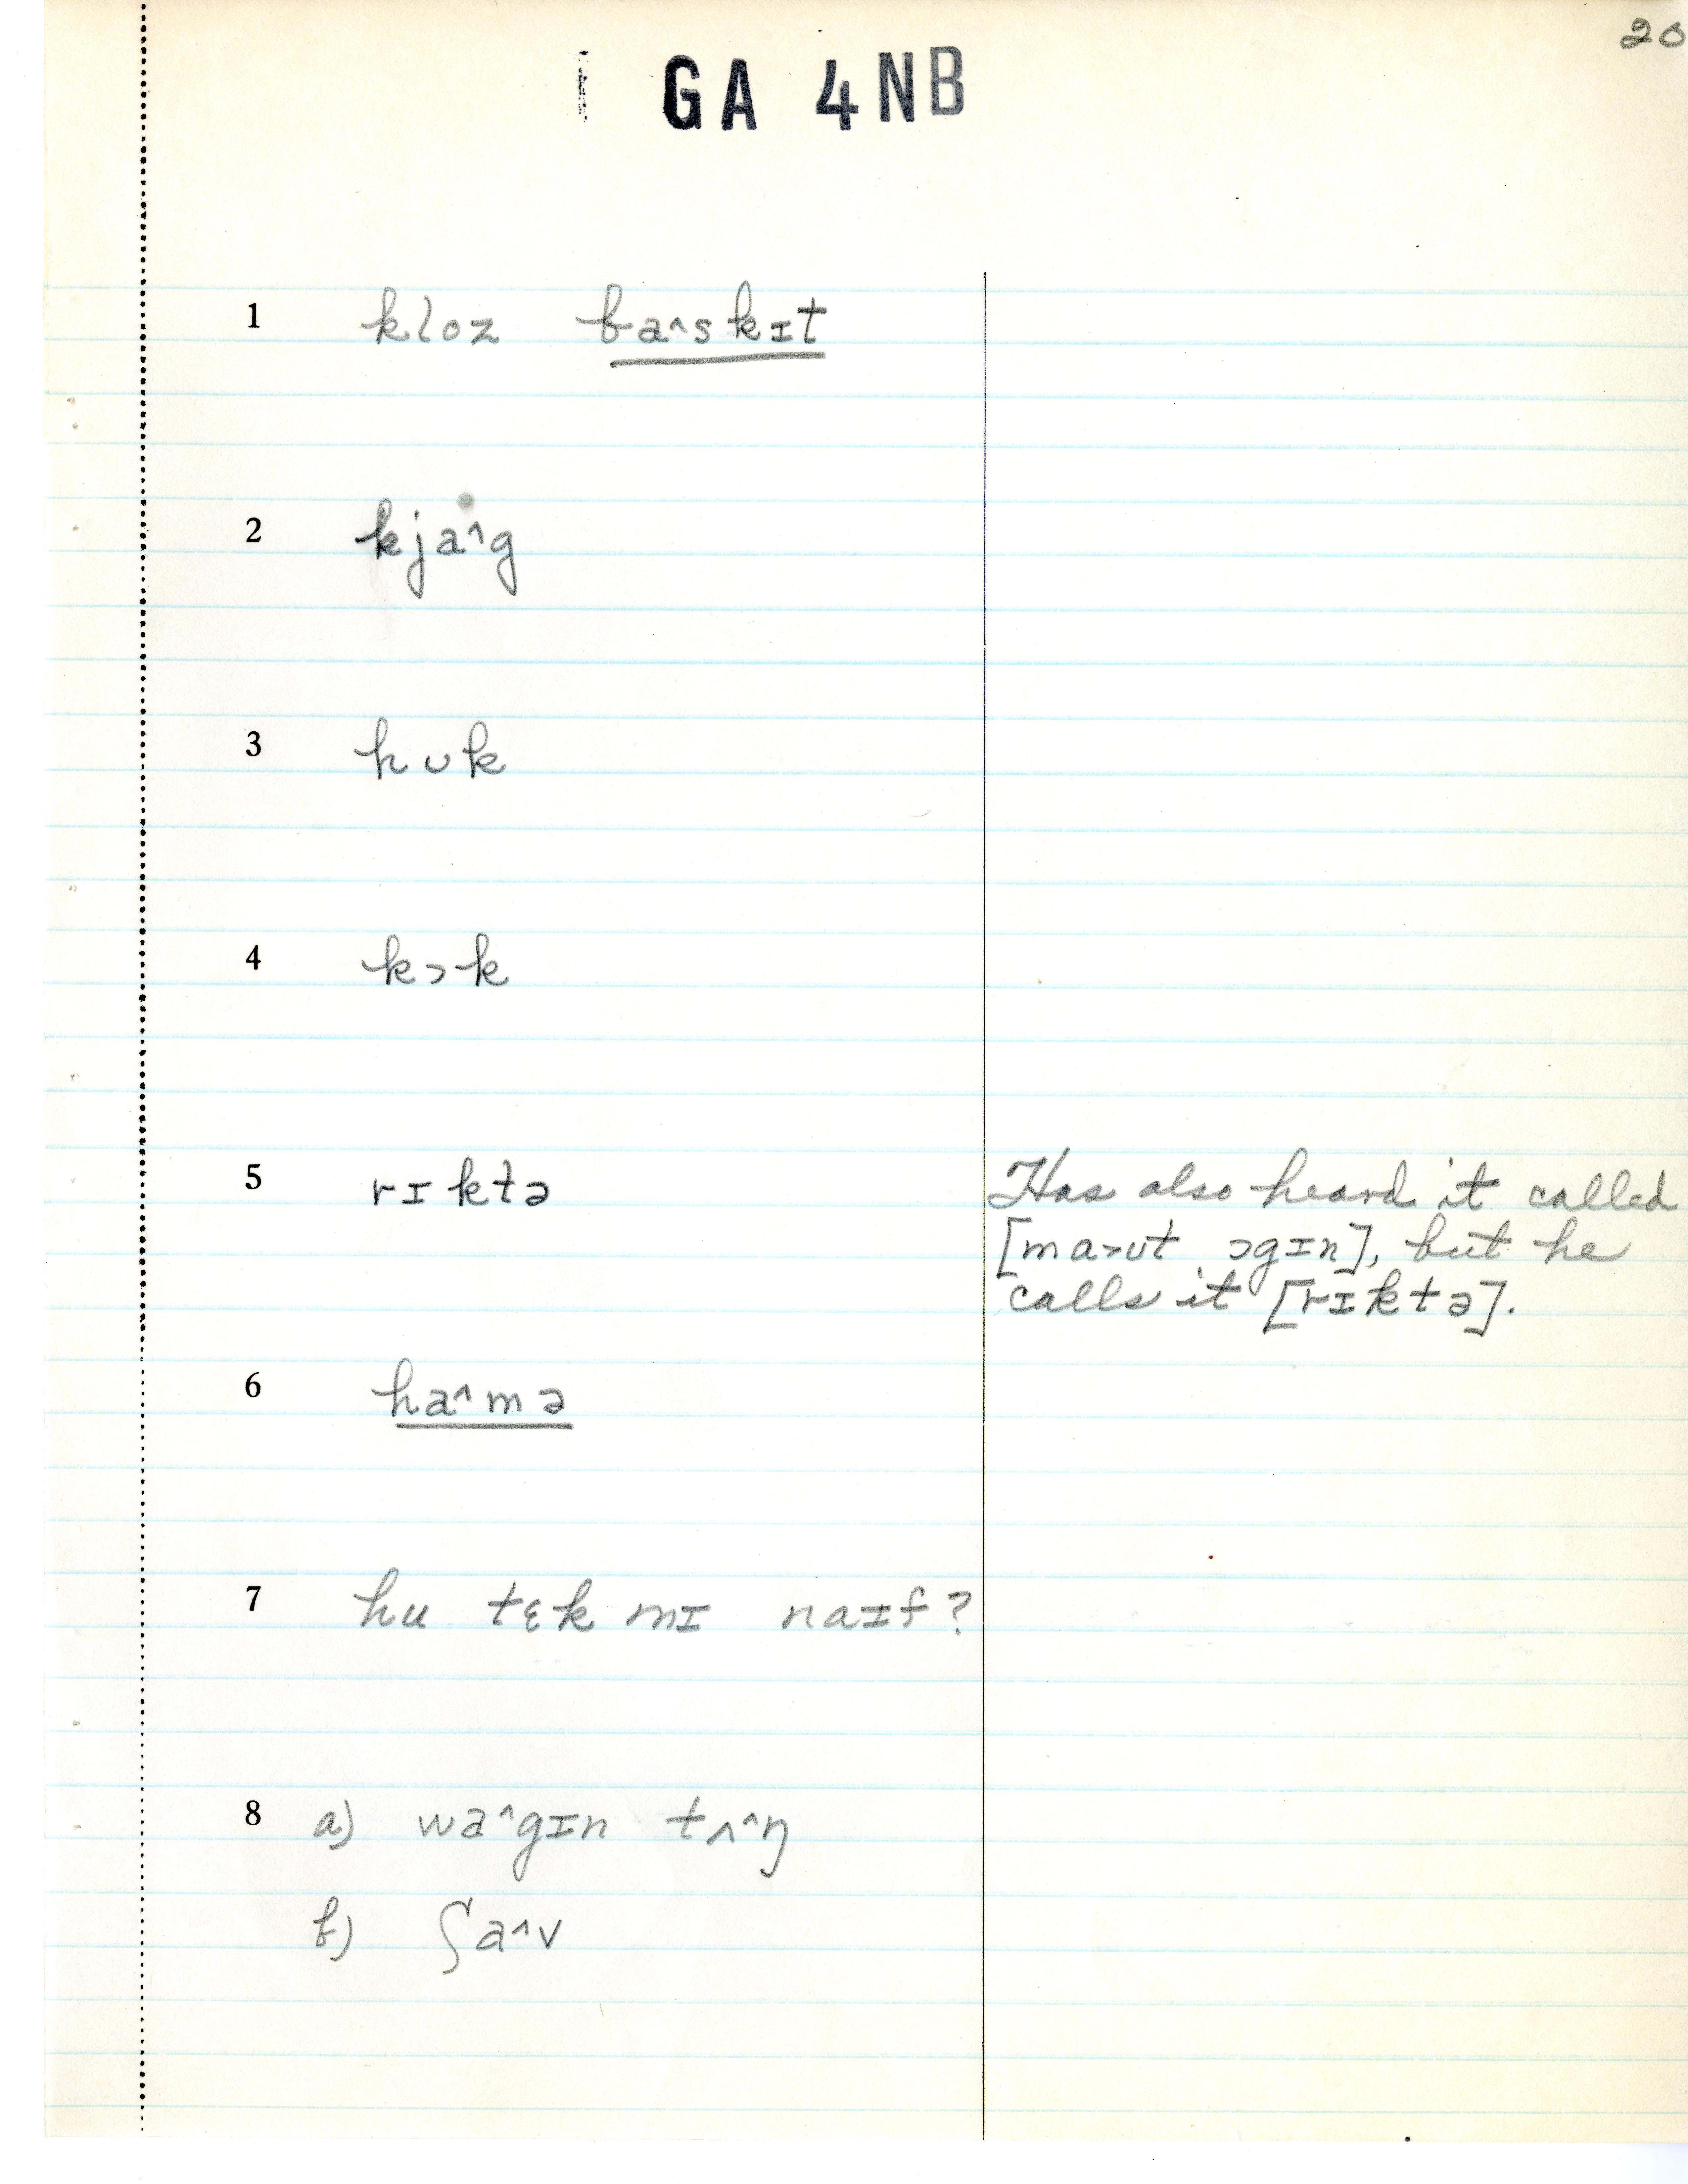 20
GA 4NB
1 kloz ba^skɪt
2 kja^g
3 hʊk
4 kɔk
5 rɪktə
Has also heard it called
[ma>ʊt ɔgɪn], but he
calls it [rɪktə].
6 ha^mə
7 hu tɛk mɪ naɪf?
8 a) wa^gɪn tʌ^ŋ
b) ʃa^v